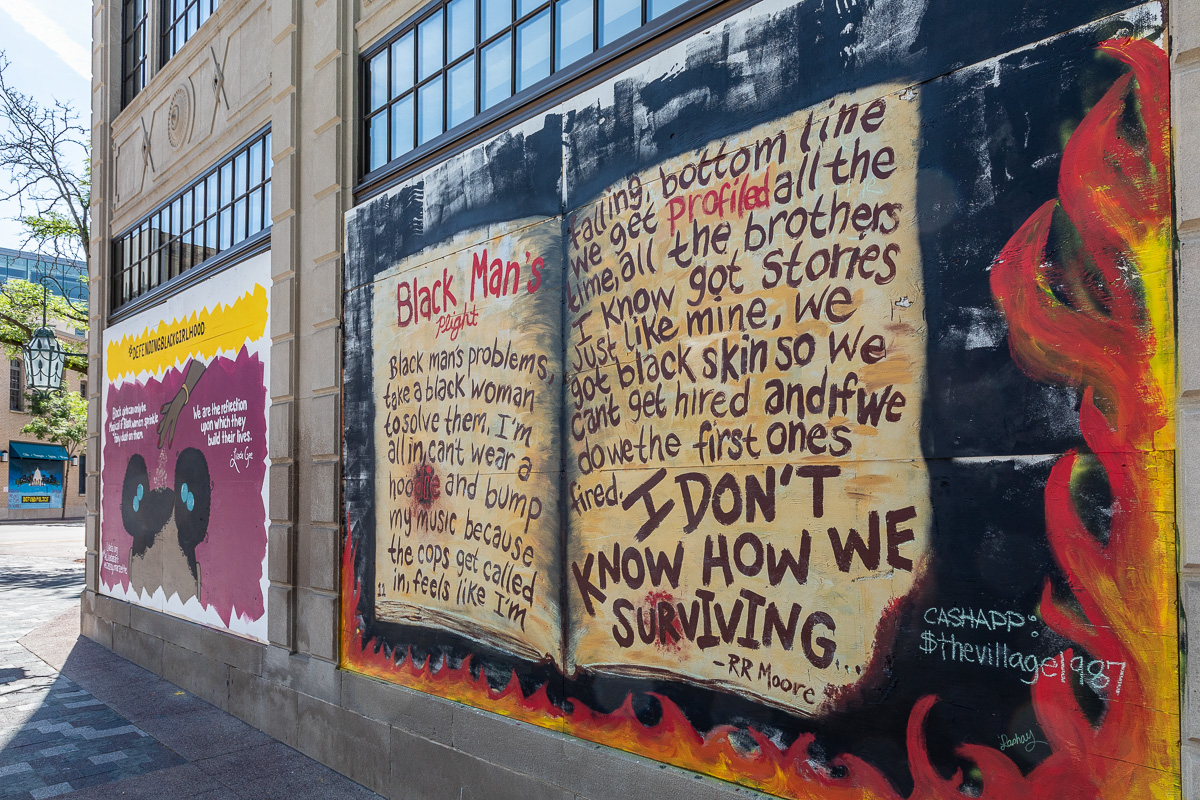 #DEFENDINGBLACKGIRLHOOD
Black girls can only be
Magical if Black women sprinkle
Fairy dust on them.
We are the reflection
upon which they
build their lives.
Black Man's
Plight
Black man's problems,
take a black woman
to solve them, I'm
all in, can't wear a
hoodie and bump
my music because
the cops get called
in, feels like I'm
falling, bottom line
we get profiled all the
time, all the brothers
I know got stories
Just like mine, we
got black skin so we
cant get hired and if we
do we the first ones
fired. I DON'T
KNOW HOW WE
SURVIVING...
-RR Moore
CASHAPP:
$thevillage1987